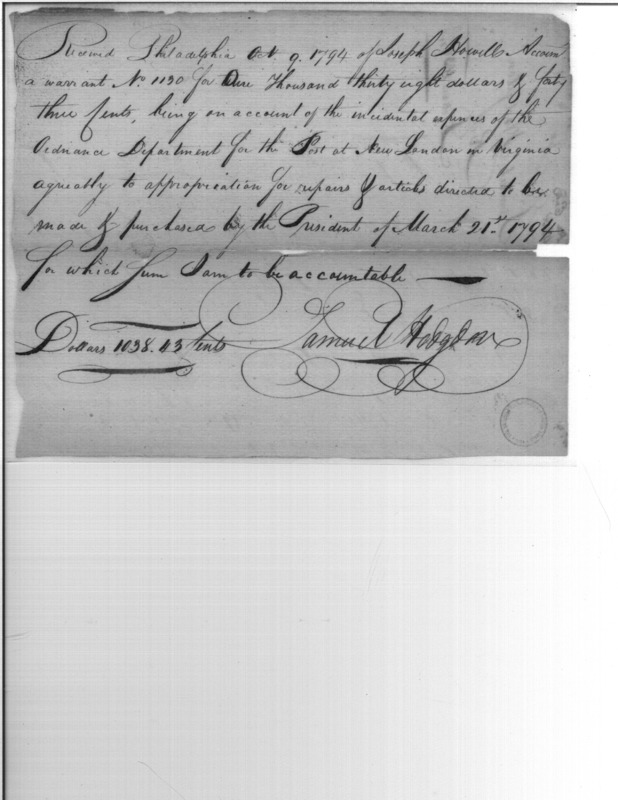 Received Philadelphia Oct. 9. 1794 of Joseph Howell Accom
a warrant No. 1130 for One Thousand thirty eight dollars & forty
three Cents, being on account of the incidental expences of the
Ordnance Department for the Post at New London in Virginia
agreably to appropriation for repairs & articles directed to be
made & purchased by the President of March 21st 1794
for which sum I am to be accountable
Dollars 1038.43 Cents Samuel Hodgdon